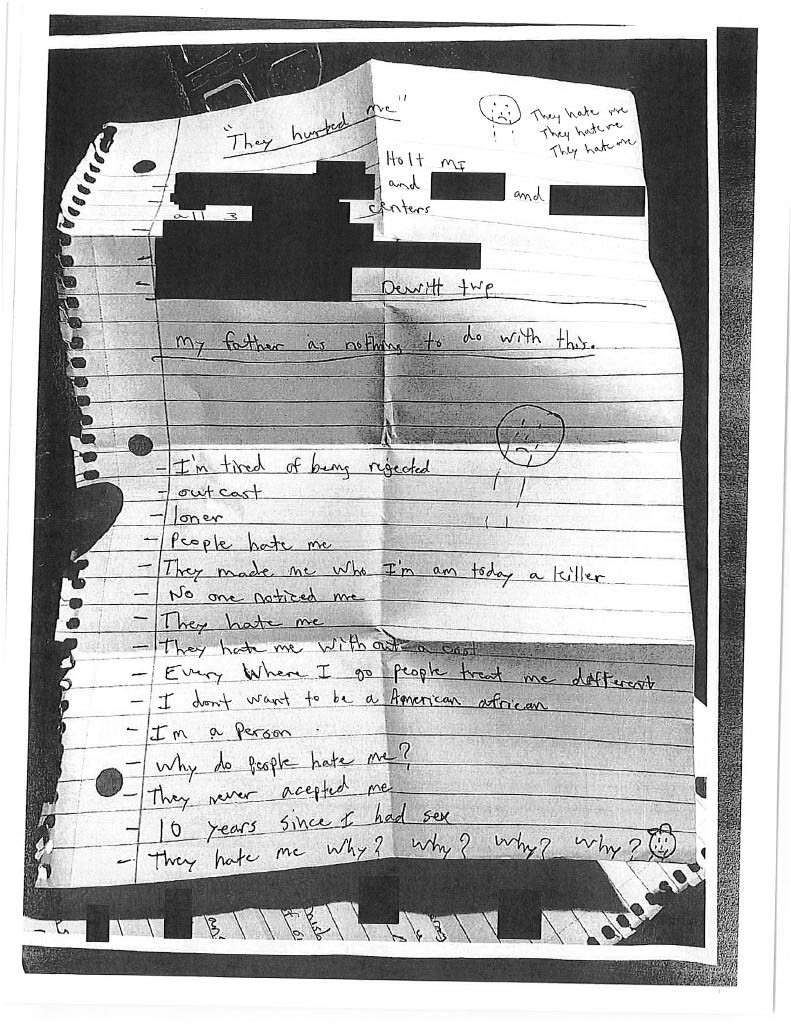 "They hurted me"
They hate me
They hate me
They hate me
Holt MI
and and
all 3 centers
Dewitt twp
My father as nothing to do with this.
- I'm tired of being rejected
- outcast
- loner
- People hate me
- They made me who I'm am today a killer
- No one noticed me
- They hate me
- They hate me without a cast
- Every where I go people treat me different
- I dont want to be a American african
- I'm a person
- Why do people hate me?
- They never acepted me
- 10 years since I had sex
- They hate me why? why? why? why?